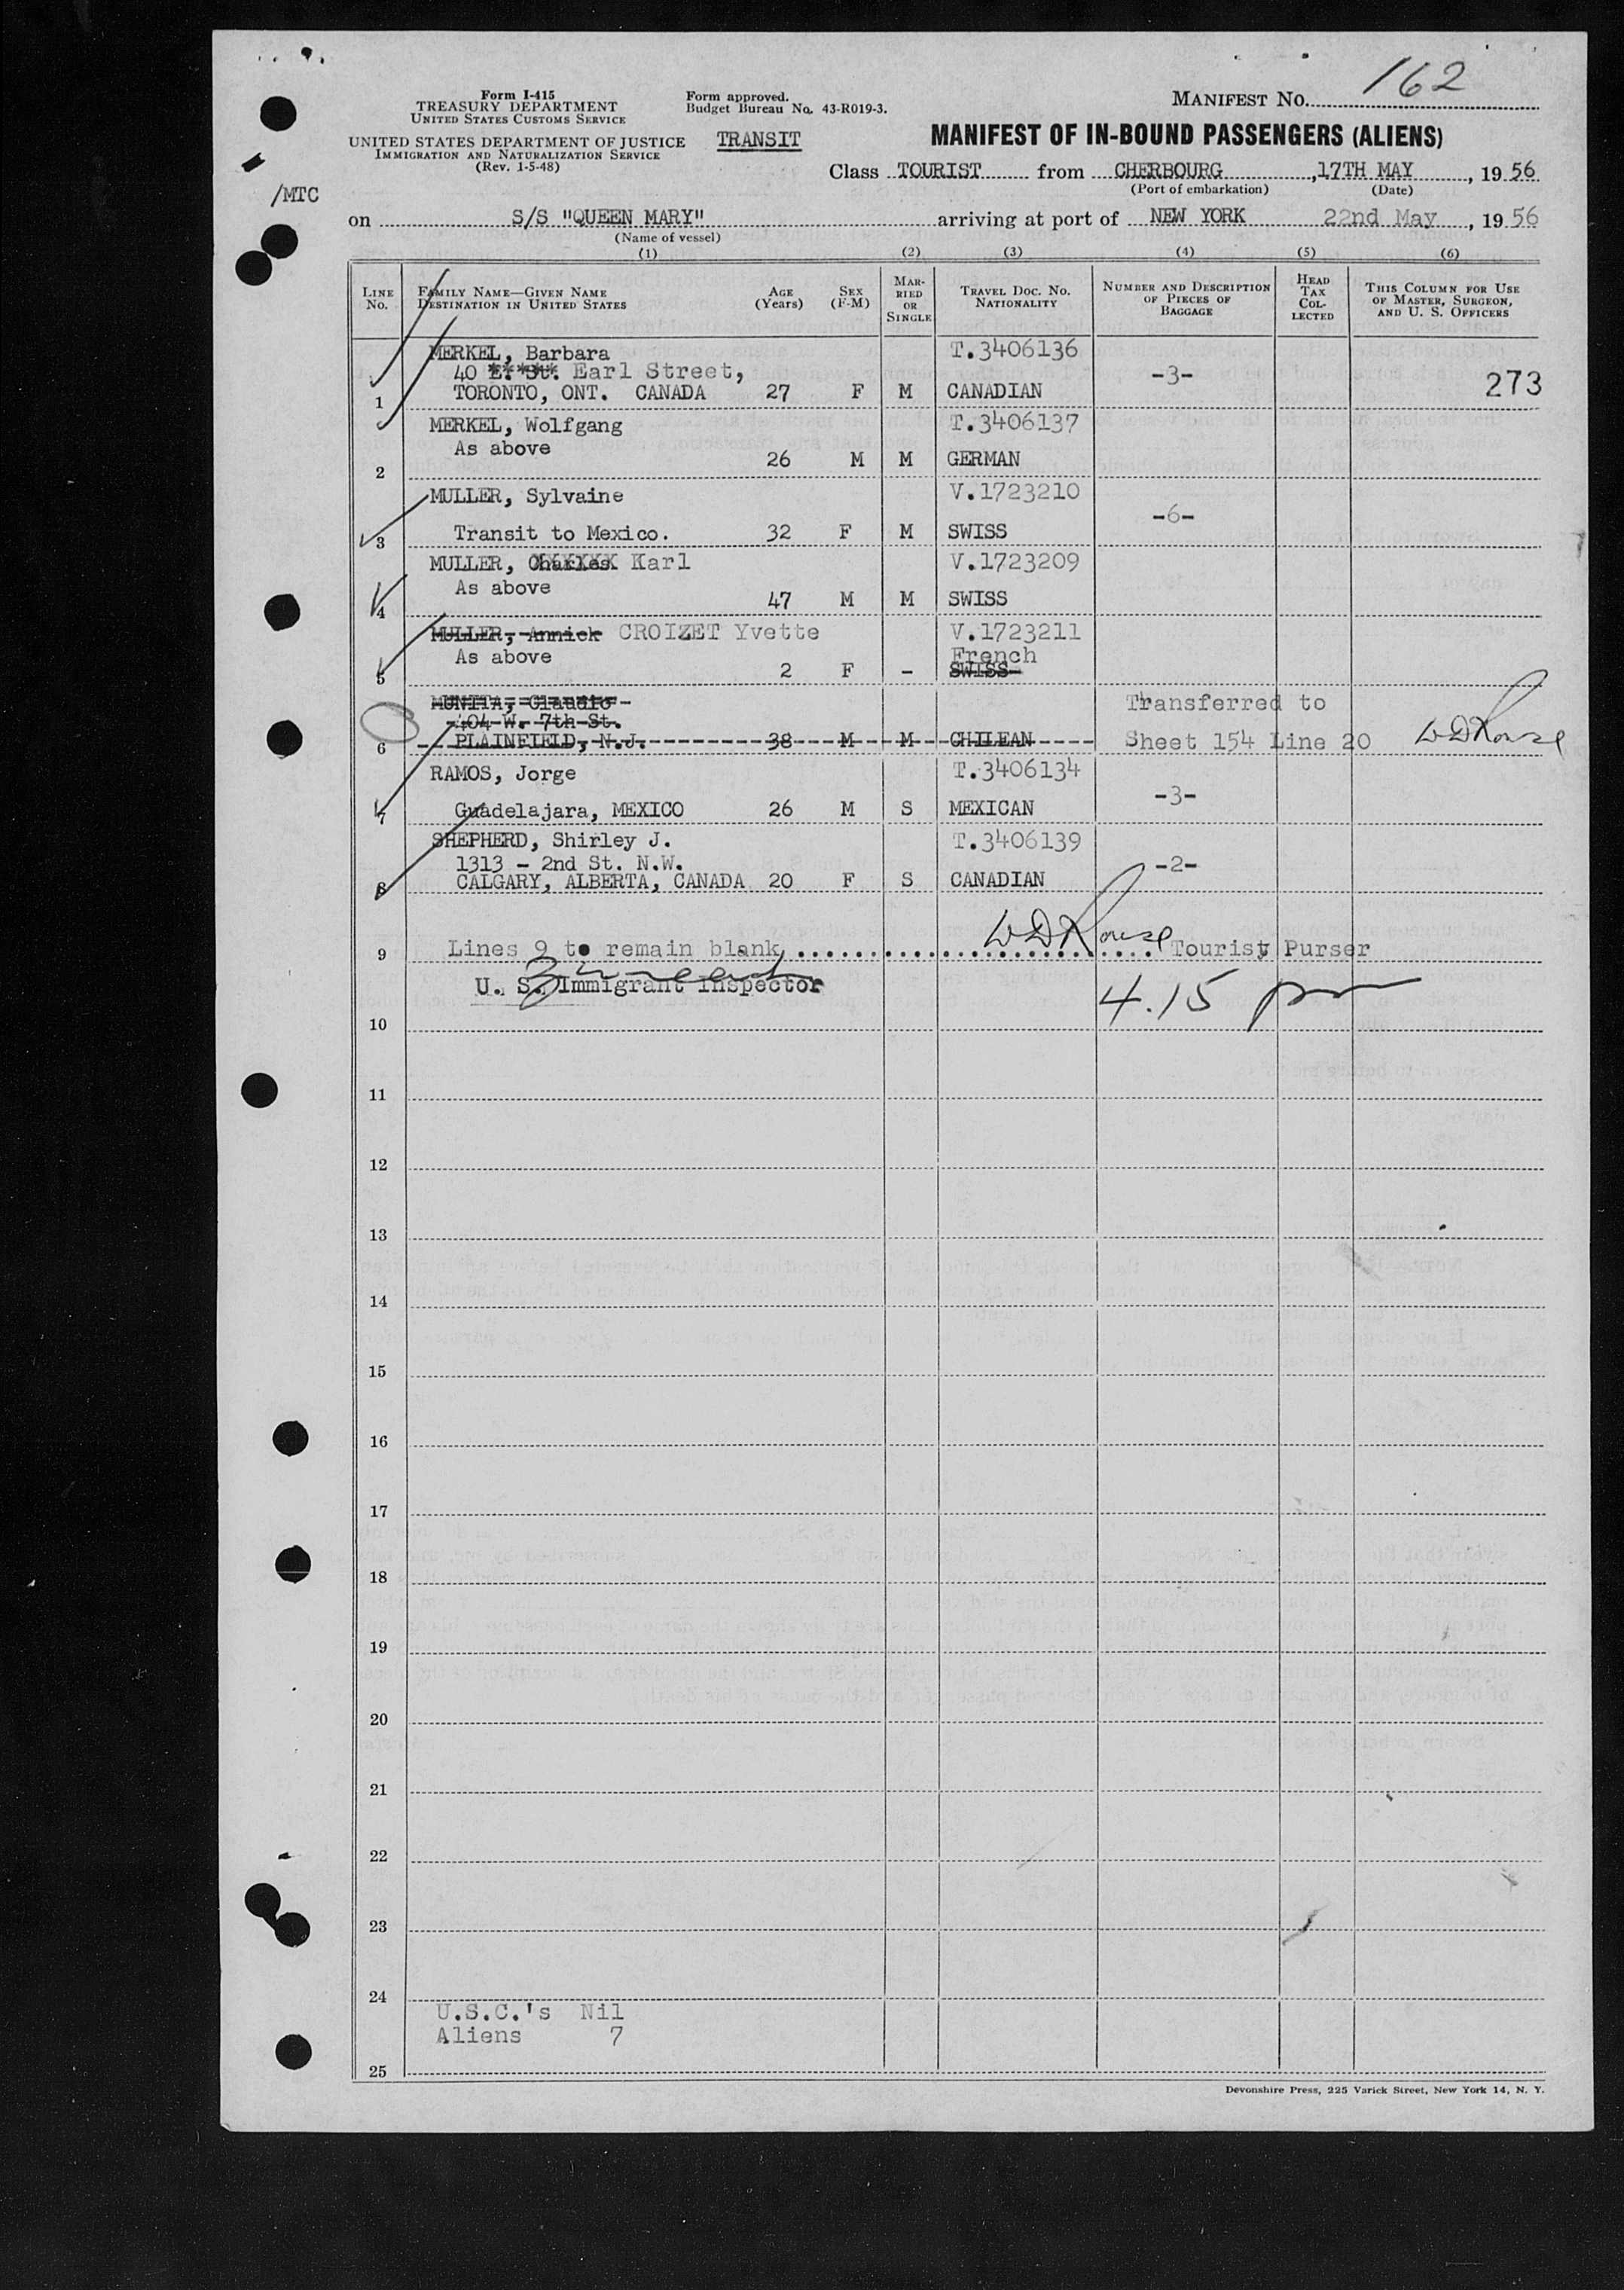 162
Form I-415
TREASURY DEPARTMENT
UNITED STATES CUSTOMS SERVICE
UNITED STATES DEPARTMENT OF JUSTICE
IMMIGRATION AND NATURALIZATION SERVICE
(Rev. 1-5-48)
/MTC
Form approved.
Budget Bureau No. 43-R019-3.
TRANSIT
MANIFEST NO.
MANIFEST OF IN-BOUND PASSENGERS (ALIENS)
Class TOURIST from CHERBOURG, 17TH MAY, 1956
(Port of embarkation) (Date)
on S/S "QUEEN MARY" arriving at port of NEW YORK 22nd May, 1956
(Name of vessel)
(1) (2) (3) (4) (5) (6)
LINE NO. FAMILY NAME—GIVEN NAME DESTINATION IN UNITED STATES AGE (Years) SEX (F-M) MARRIED OR SINGLE TRAVEL DOC. NO. NATIONALITY NUMBER AND DESCRIPTION OF PIECES OF BAGGAGE HEAD TAX COLLECTED THIS COLUMN FOR USE OF MASTER, SURGEON, AND U. S. OFFICERS
MERKEL, Barbara T.3406136
40 E. St. Earl Street, -3-
1 TORONTO, ONT. CANADA 27 F M CANADIAN 273
MERKEL, Wolfgang T.3406137
As above
2 26 M M GERMAN
MULLER, Sylvaine V.1723210
-6-
3 Transit to Mexico. 32 F M SWISS
MULLER, Charles Karl V.1723209
As above
4 47 M M SWISS
MULLER, Annick CROIZET Yvette V.1723211
As above French
5 2 F - SWISS
MUNITA, Claudio Transferred to
404 W. 7th St.
6 PLAINFIELD, N.J. 38 M M CHILEAN Sheet 154 Line 20 WDRouse
RAMOS, Jorge T.3406134
-3-
7 Guadelajara, MEXICO 26 M S MEXICAN
SHEPHERD, Shirley J. T.3406139
1313 - 2nd St. N.W. -2-
8 CALGARY, ALBERTA, CANADA 20 F S CANADIAN
9 Lines 9 to remain blank WDRouse Tourist Purser
U. S. Immigrant Inspector 4.15 pm
10
11
12
13
14
15
16
17
18
19
20
21
22
23
24
U.S.C.'s Nil
Aliens 7
25
Devonshire Press, 225 Varick Street, New York 14, N. Y.